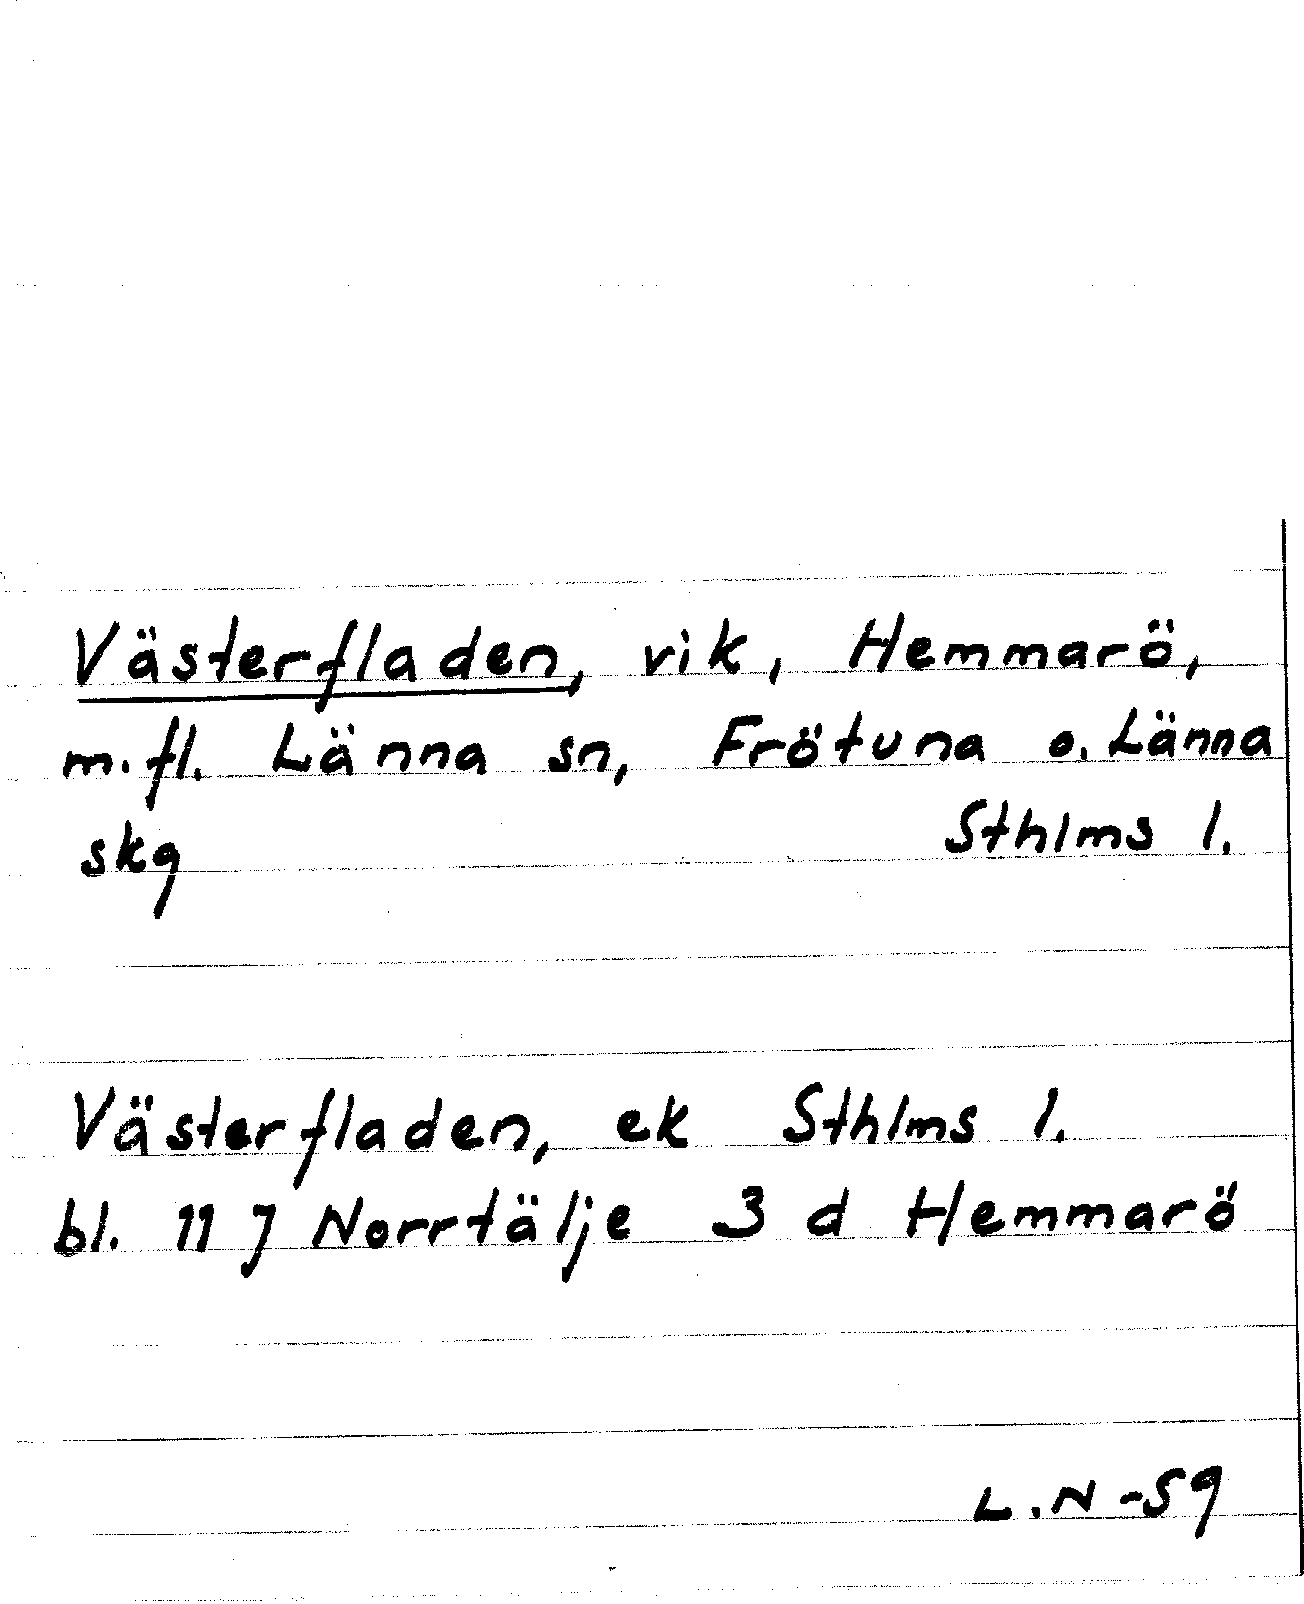 Västerfladen, vik, Hemmarö,
m.fl. Länna sn, Frötuna o. Länna
skg Sthlms l.
Västerfladen, ek Sthlms l.
bl. 11 J Norrtälje 3 d Hemmarö
L.N -59